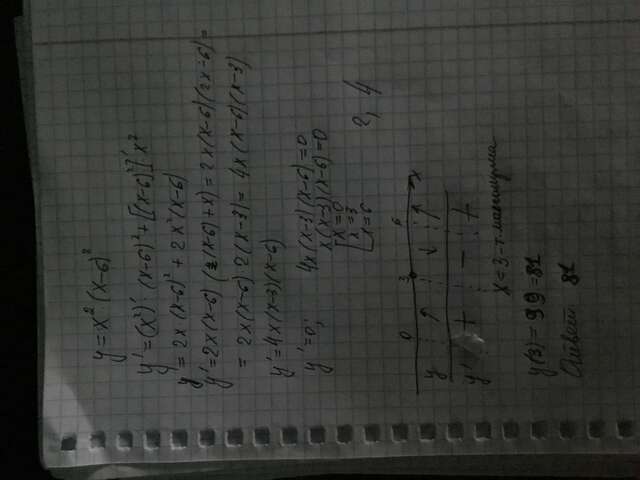 y = x² (x-6)²
y' = (x²)' (x-6)² + [(x-6)²]' x²
y' = 2x (x-6)² + 2x² (x-6)
y' = 2x(x-6) (x-6+x) = 2x(x-6)(2x-6) =
= 2x(x-6) 2(x-3) = 4x(x-6)(x-3)
y' = 4x(x-3)(x-6)
y' = 0; 4x(x-3)(x-6)=0
x(x-3)(x-6)=0
[x=0
x=3
x=6
2, 4
0 3 6 x
y ↑ ↓ ↑
y' + − +
x=3 - т. максимума
y(3) = 9·9 = 81
Ответ 81